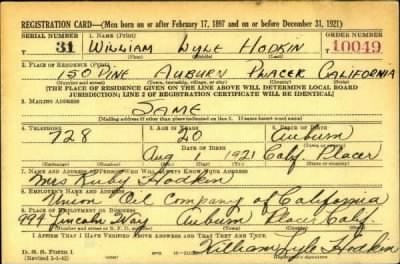 REGISTRATION CARD—(Men born on or after February 17, 1897 and on or before December 31, 1921)
SERIAL NUMBER 1. NAME (Print) ORDER NUMBER
31 WILLIAM LYLE HODKIN 10049
(First) (Middle) (Last)
2. PLACE OF RESIDENCE (Print)
150 PINE AUBURN PLACER CALIFORNIA
(Number and street) (Town, township, village, or city) (County) (State)
[THE PLACE OF RESIDENCE GIVEN ON THE LINE ABOVE WILL DETERMINE LOCAL BOARD
JURISDICTION; LINE 2 OF REGISTRATION CERTIFICATE WILL BE IDENTICAL]
3. MAILING ADDRESS
SAME
[Mailing address if other than place indicated on line 2. If same insert word same]
4. TELEPHONE 5. AGE IN YEARS 6. PLACE OF BIRTH
728 20 Auburn
DATE OF BIRTH (Town or county)
Aug 1921 Calif. Placer
(Exchange) (Number) (Mo.) (Day) (Yr.) (State or country)
7. NAME AND ADDRESS OF PERSON WHO WILL ALWAYS KNOW YOUR ADDRESS
Mrs Ruby Hodkin
8. EMPLOYER'S NAME AND ADDRESS
Union Oil Company of California
9. PLACE OF EMPLOYMENT OR BUSINESS
994 Lincoln Way Auburn Placer Calif.
(Number and street or R. F. D. number) (Town) (County) (State)
I AFFIRM THAT I HAVE VERIFIED ABOVE ANSWERS AND THAT THEY ARE TRUE.
D. S. S. Form 1
William Lyle Hodkin